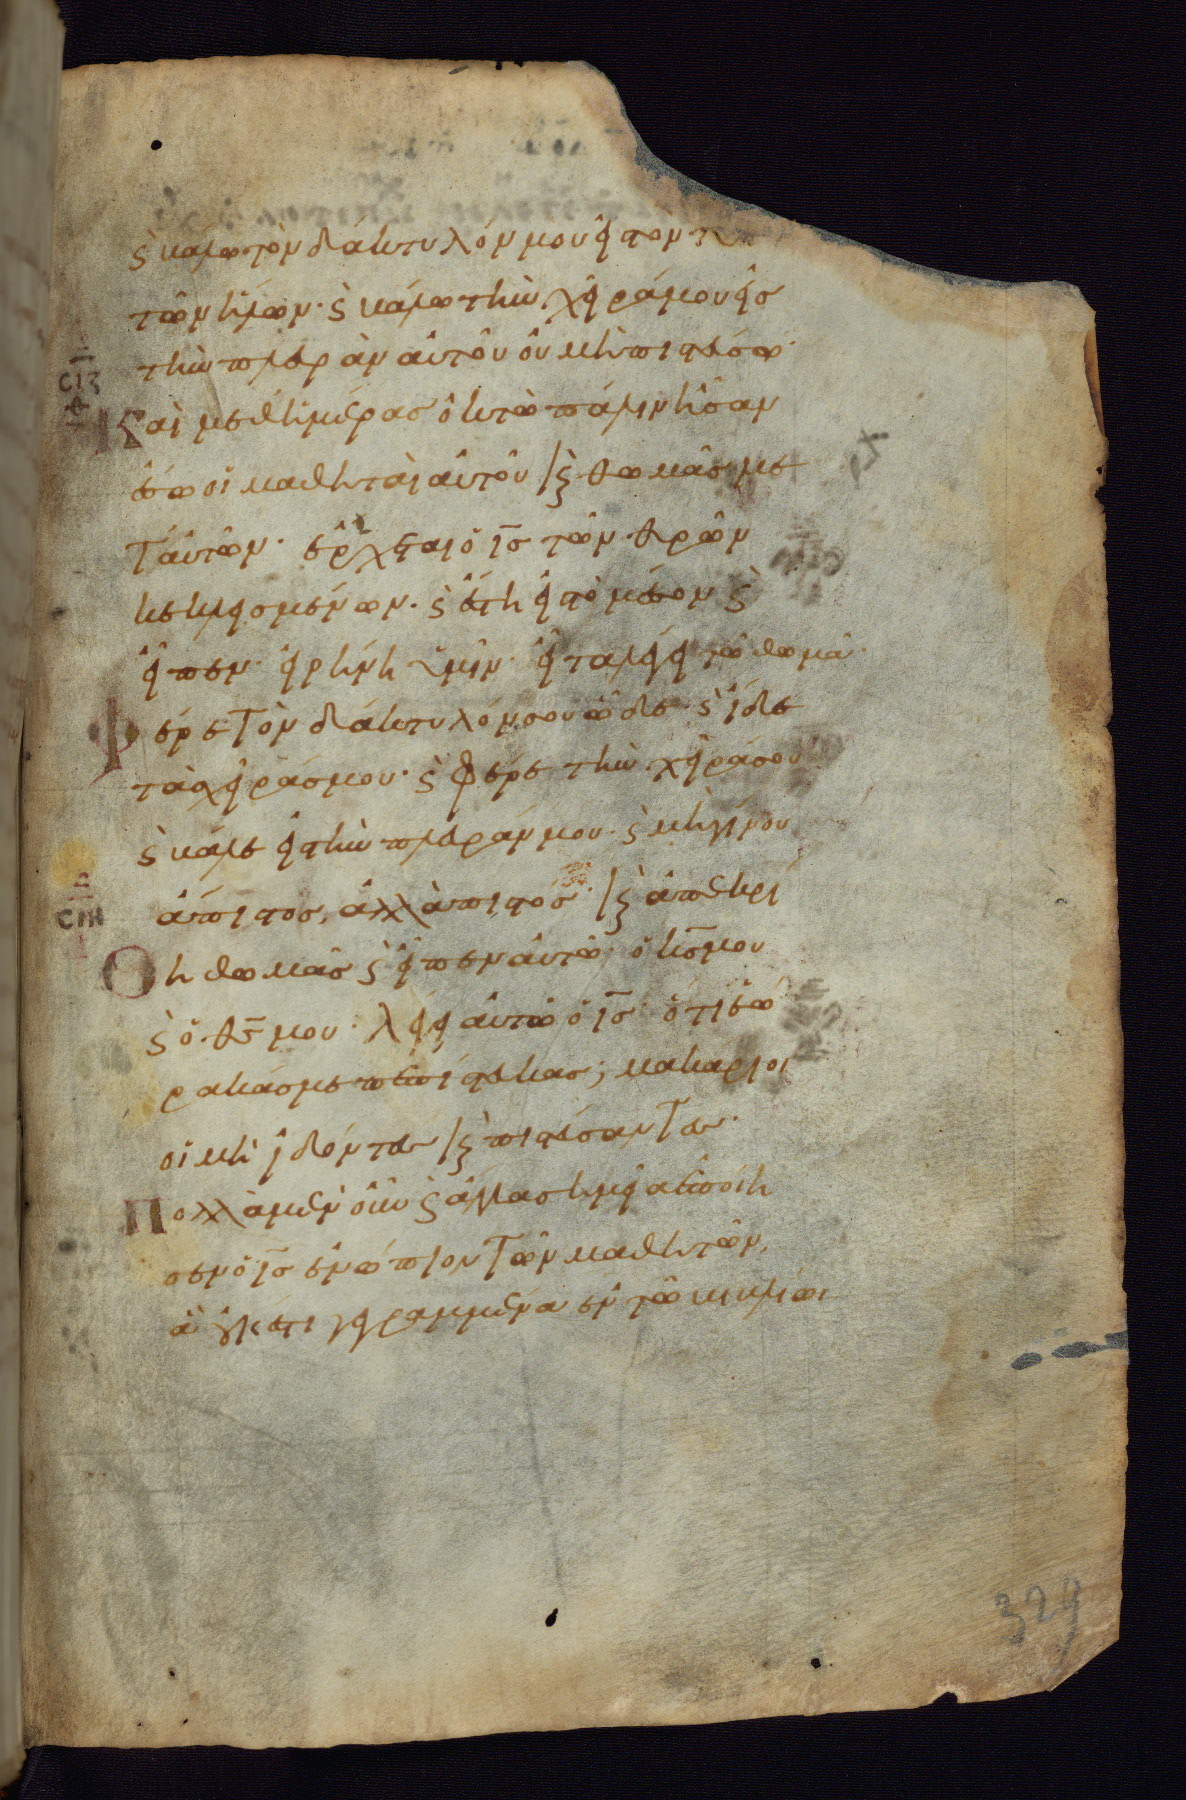 ϛ βάλω τὸν δάκτυλόν μου εἰς τὸν τύ
τῶν ἥλων· ϛ βάλω τὴν χεῖρά μου εἰς
τὴν πλευρὰν αὐτοῦ οὐ μὴ πιστεύσω·
σιζ
Καὶ μεθ ἡμέρας ὀκτὼ πάλιν ἦσαν
ἔσω οἱ μαθηταὶ αὐτοῦ ϛ θωμᾶς με
τ αὐτῶν· ἔρχεται ὁ ις τῶν θυρῶν
κεκλεισμένων· ϛ ἔστη εἰς τὸ μέσον ϛ
εἶπεν· εἰρήνη ὑμῖν· εἶτα λέγει τῶ θωμᾶ·
Φέρε τὸν δάκτυλόν σου ὧδε· ϛ ἴδε
τὰς χεῖράς μου· ϛ φέρε τὴν χεῖρά σου
ϛ βάλε εἰς τὴν πλευράν μου· ϛ μὴ γίνου
ἄπιστος, ἀλλὰ πιστός· ϛ ἀπεκρί
σιη
Θη θωμᾶς ϛ εἶπεν αὐτῶ· ὁ κς μου
ϛ ὁ θς μου· λέγει αὐτῶ ὁ ις· ὅτι ἑώ
ρακάς με πεπίστευκας; μακάριοι
οἱ μὴ ἰδόντες ϛ πιστεύσαντες·
Πολλὰ μὲν οὖν ϛ ἄλλα σημεῖα ἐποίη
σεν ὁ ις ἐνώπιον τῶν μαθητῶν,
ἃ οὐκ ἔστι γεγραμμένα ἐν τῶ βιβλίωι
324